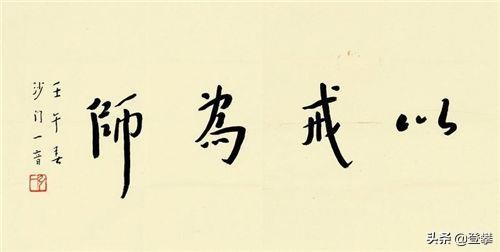 以戒為師
壬午春
沙門一音
头条 @登攀